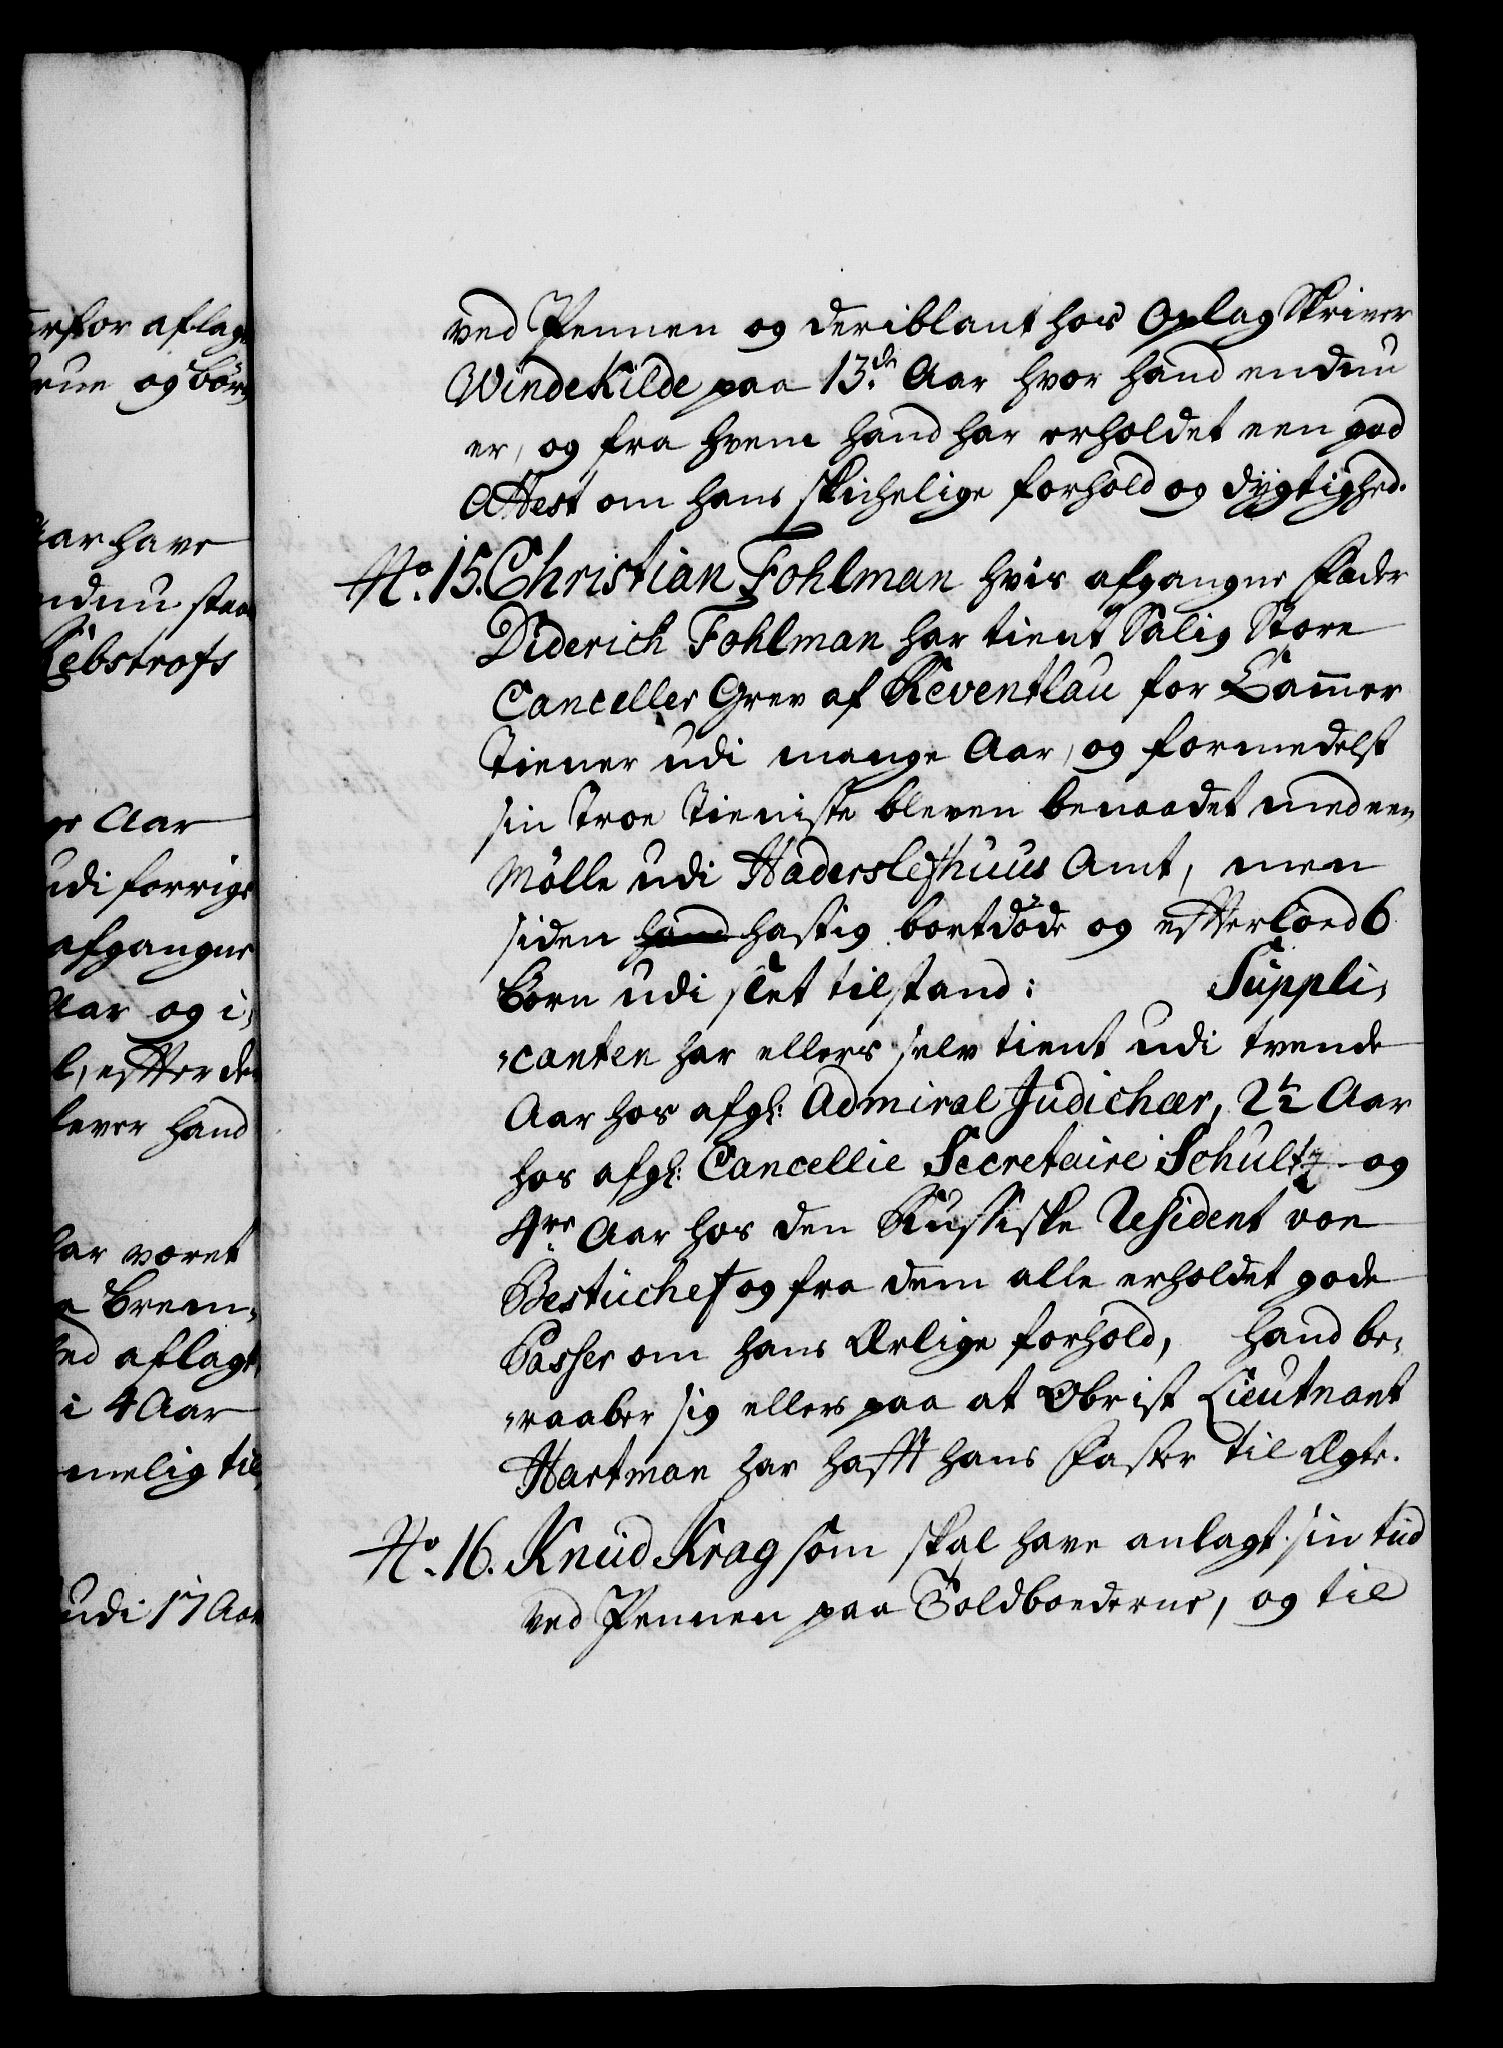 erfor aflagt
Frue og Bør
Aar have
endnu staa
Rebstrofs
ge Aar
udi forrige
afgangne
Aar og i,
l, effter de
lever hand
har været
e Brem,
ed aflagt,
i 4 Aar
melig til,
udi 17 Aar
ved Pennen og deriblant hos Oplag Skriver
WindeKilde paa 13de Aar hvor hand endnu
er, og fra hvem hand har erholdet een god
Attest om hans skichelige forhold og dygtighed.
No. 15. Christian Fohlman hvis afgangne Fader
Diderich Fohlman har tient Salig Store
Canceller Grev af Reventlau for Cammer
Tiener udi mange Aar, og formedelst
sin troe Tieniste bleven benaadet med een
Mölle udi Haderslefhuus Amt, men
siden hand hastig bortdöde og effterloed 6
Börn udi slet tilstand: Suppli,
,,canten har ellers selv tient udi trende
Aar hos afgl: Admiral Judichær, 2½ Aar
hos afgl: Cancellie Secretaire Schultz og
4re Aar hos den Russiske Resident von
Bestuchef og fra dem alle erholdet gode
Passer om hans Ærlige forhold, hand be,
,,raaber sig ellers paa at Obrist Lieutnant
Hartman har hafft hans Faster til Ægte.
No. 16. Knud Krag som skal have anlagt sin tiid
ved Pennen paa Toldboederne, og til